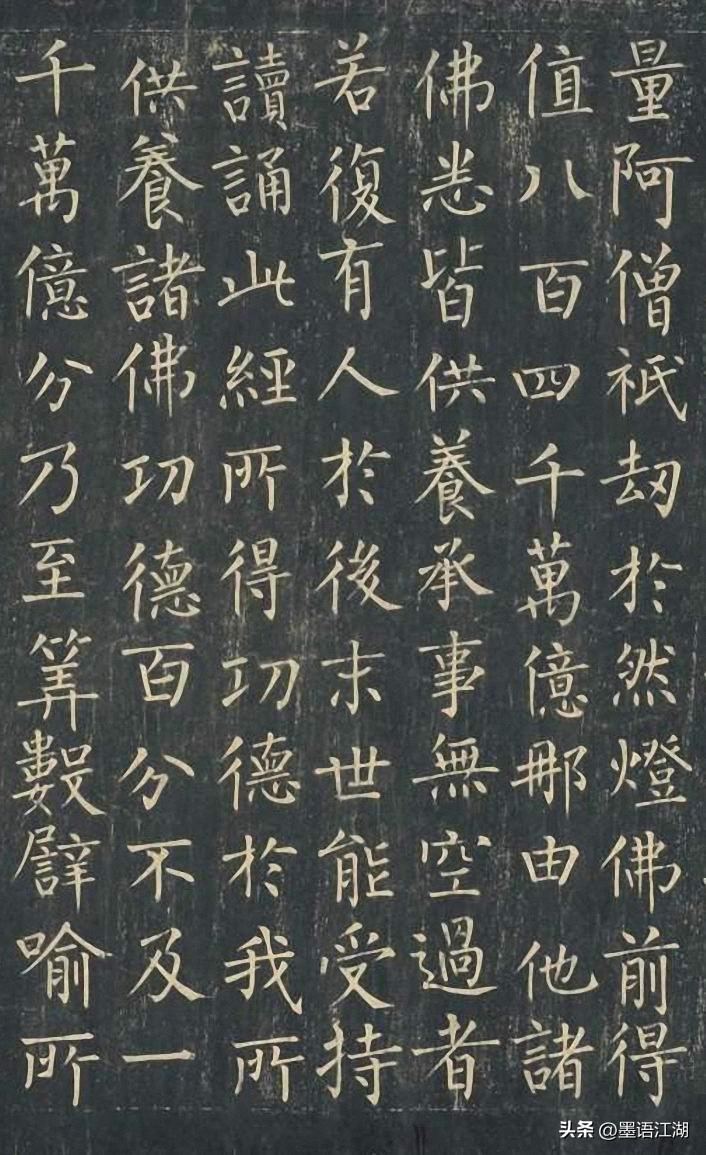 量阿僧祇劫於然燈佛前得
值八百四千萬億那由他諸
佛悉皆供養承事無空過者
若復有人於後末世能受持
讀誦此經所得功德於我所
供養諸佛功德百分不及一
千萬億分乃至筭數譬喻所
头条 @墨语江湖